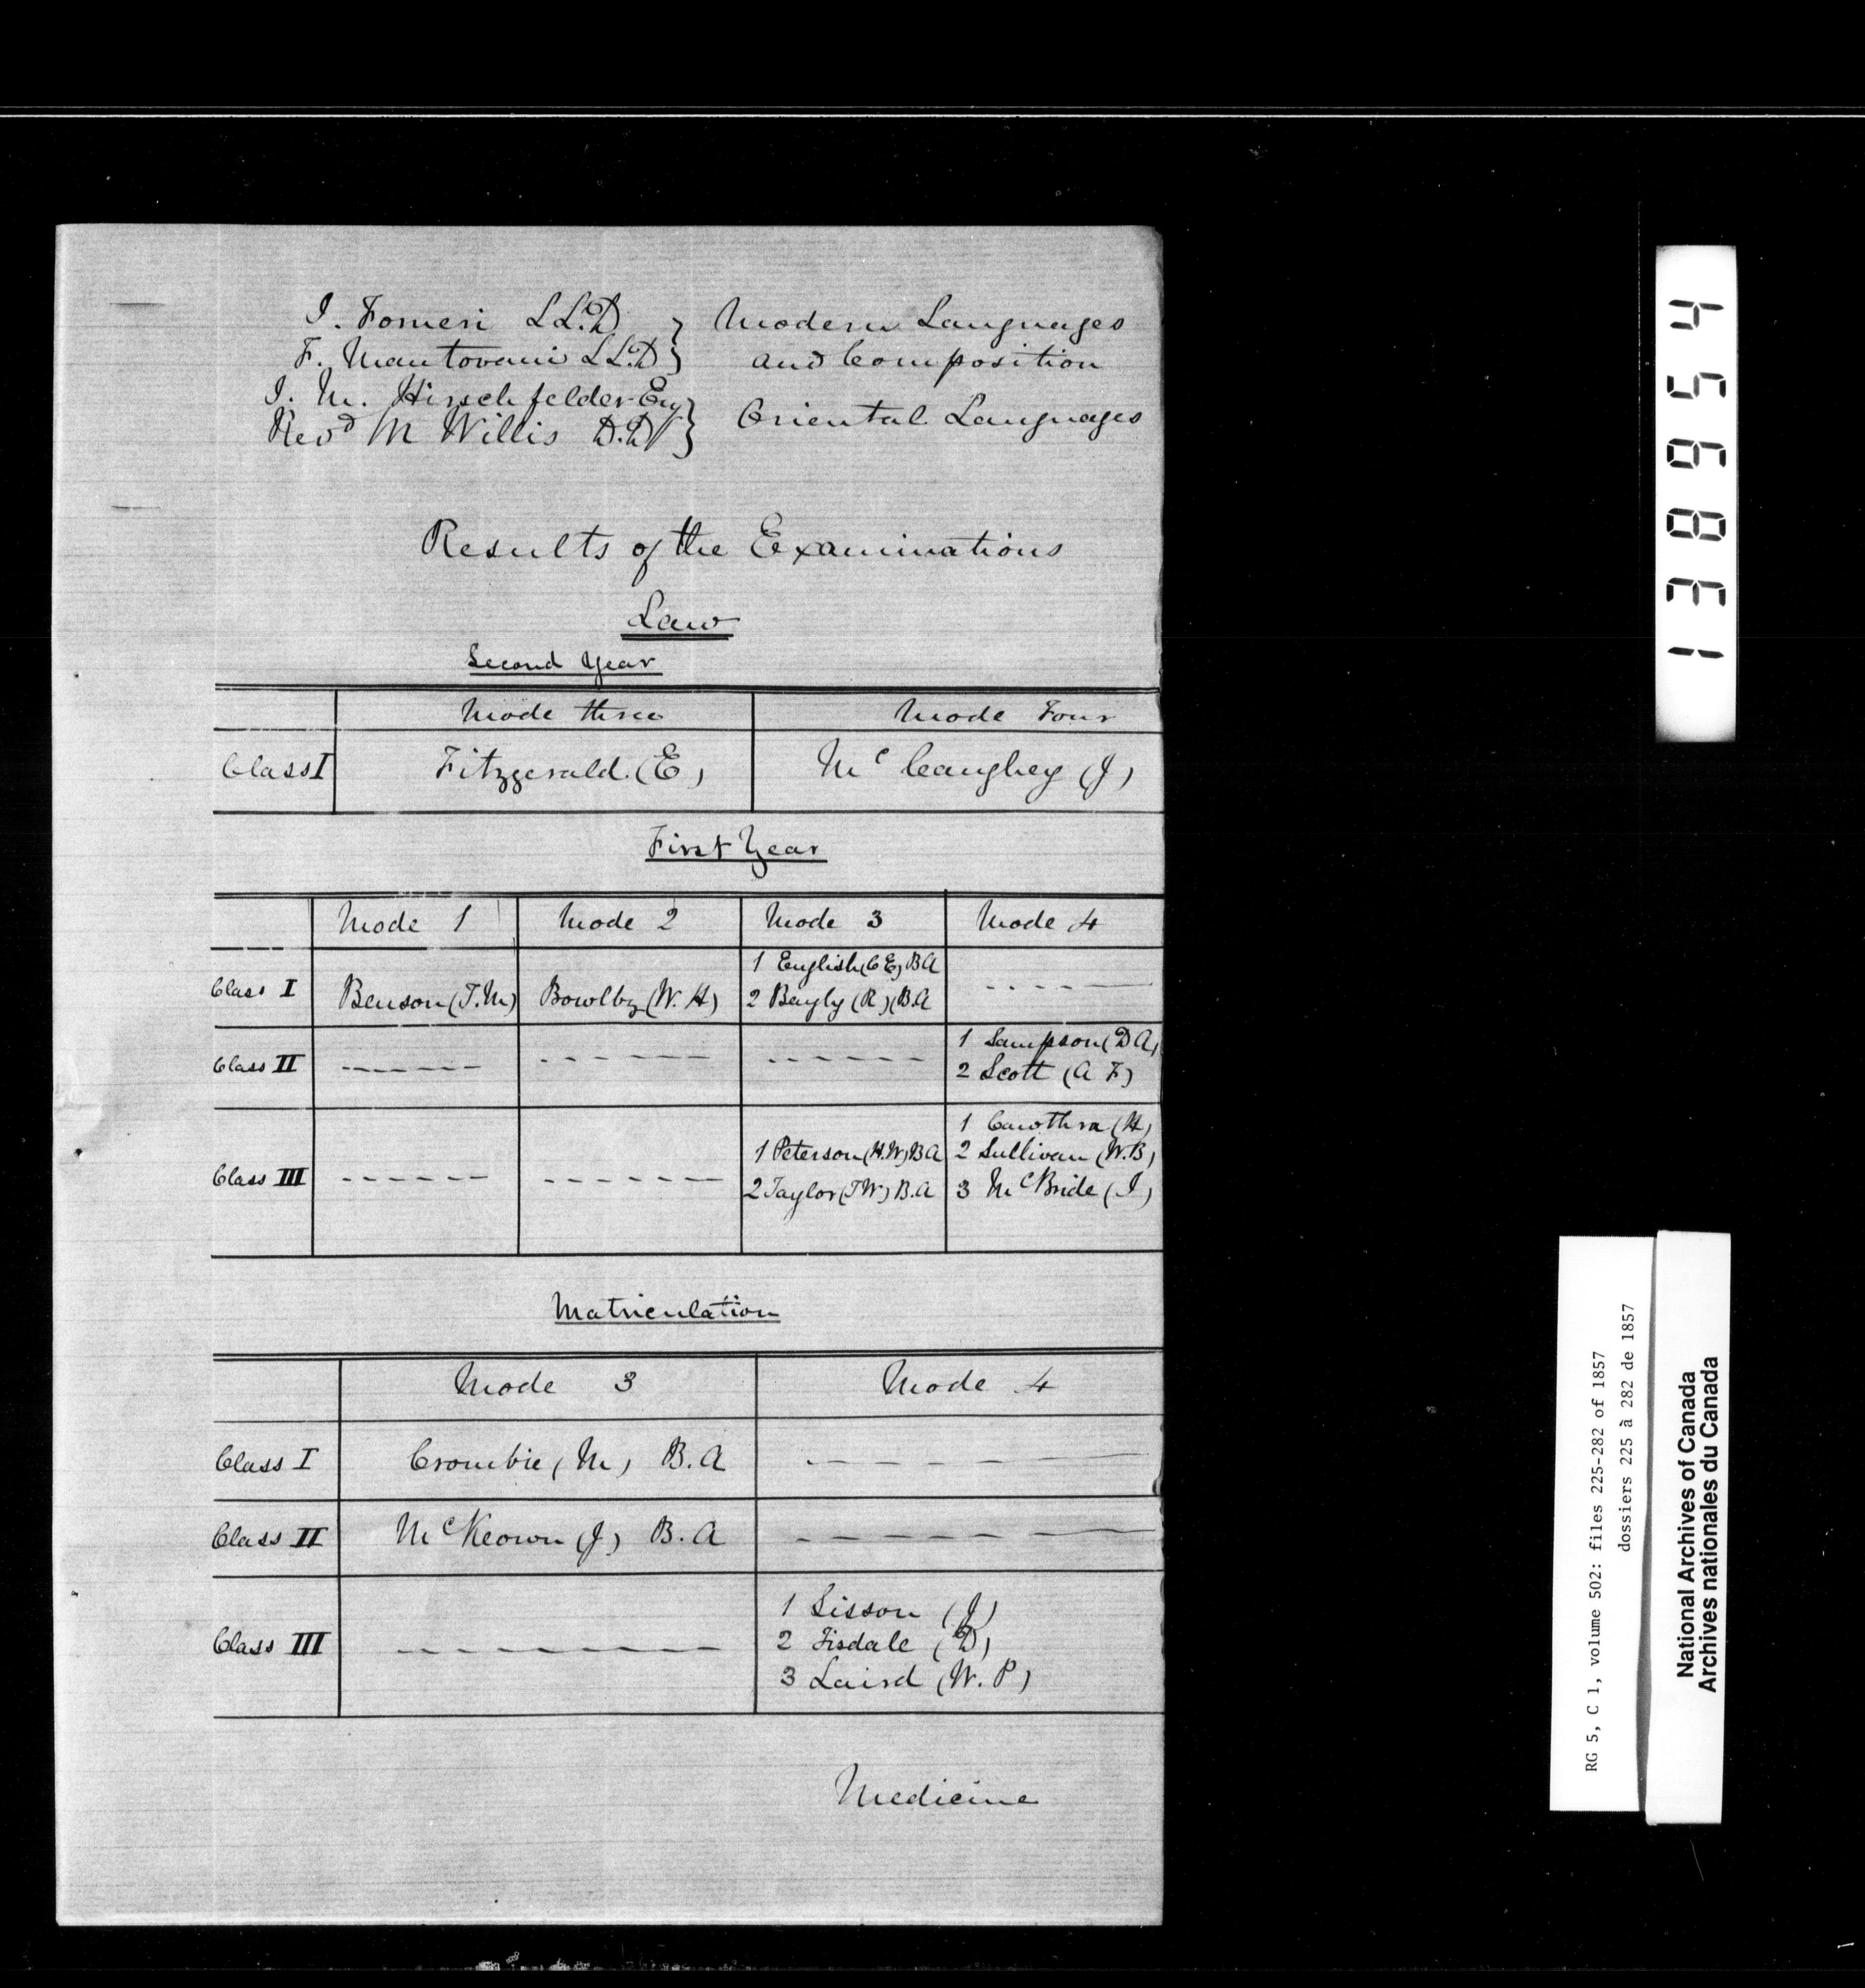 J. Forneri LL.D } Modern Languages
F. Mantovani LL.D } and Composition
J. M. Hirschfelder Esq } Oriental Languages
Revd M Willis D.D }
Results of the Examinations
Law
Second Year
Mode three Mode Four
Class I Fitzgerald (E) Mc Caughey (J)
First Year
Mode 1 Mode 2 Mode 3 Mode 4
Class I Benson (T.M) Bowlby (W.H) 1 English (C E) B A - - - -
2 Bayly (R) (B.A
Class II - - - - - - - - - - - - 1 Sampson (D A)
2 Scott (A F)
Class III - - - - - - - - 1 Peterson (H.W) B A 1 Cawthra (H)
2 Taylor (T W) B.A 2 Sullivan (W.B)
3 McBride (J)
Matriculation
Mode 3 Mode 4
Class I Crombie (M) B.A - - - -
Class II McKeown (J) B.A - - - -
Class III - - - - 1 Sisson (J)
2 Tisdale (D)
3 Laird (W. P)
Medicine
138954
RG 5, C 1, volume 502: files 225-282 of 1857
dossiers 225 à 282 de 1857
National Archives of Canada
Archives nationales du Canada